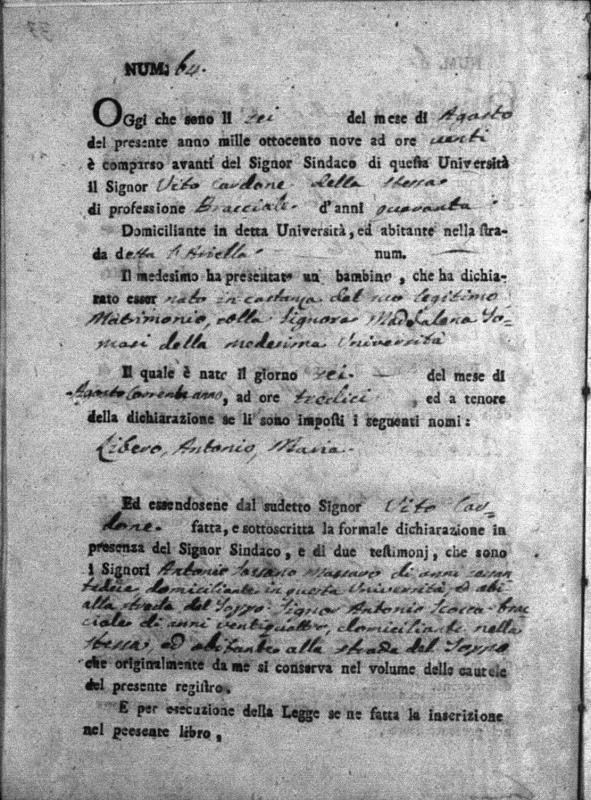 NUM: 64.
OGgi che sono li sei del mese di Agosto
del presente anno mille ottocento nove ad ore venti
è comparso avanti del Signor Sindaco di questa Università
il Signor Vito Cardone della stessa
di professione Bracciale d'anni quaranta
Domiciliante in detta Università, ed abitante nella stra-
da detta l'Ariella num.
Il medesimo ha presentato un bambino, che ha dichia-
rato esser nato in costanza del suo legitimo
Matrimonio, colla Signora Maddalena To-
masi della medesima Università
Il quale è nato il giorno sei del mese di
Agosto Corrente anno, ad ore tredici, ed a tenore
della dichiarazione se li sono imposti i seguenti nomi:
Libero, Antonio, Maria.
Ed essendosene dal sudetto Signor Vito Car-
done. fatta, e sottoscritta la formale dichiarazione in
presenza del Signor Sindaco, e di due testimonj, che sono
i Signori Antonio Massaro di anni
domiciliante in questa Università, ed abi-
alla strada del Signor Antonio Scocca brac-
ciale di anni ventiquattro, domiciliante nella
stessa, ed abitante alla strada del
che originalmente da me si conserva nel volume delle cautele
del presente registro.
E per esecuzione della Legge se ne fatta la inscrizione
nel peesente libro,